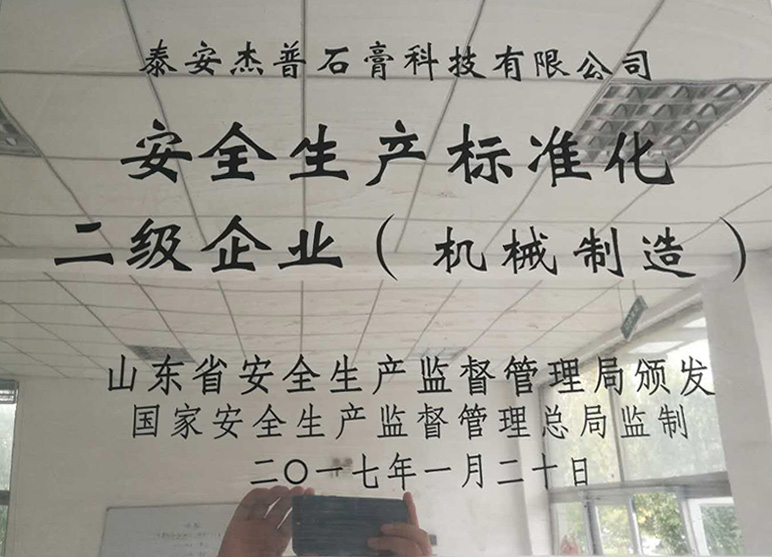 泰安杰普石膏科技有限公司
安全生产标准化
二级企业（机械制造）
山东省安全生产监督管理局颁发
国家安全生产监督管理总局监制
二〇一七年一月二十日